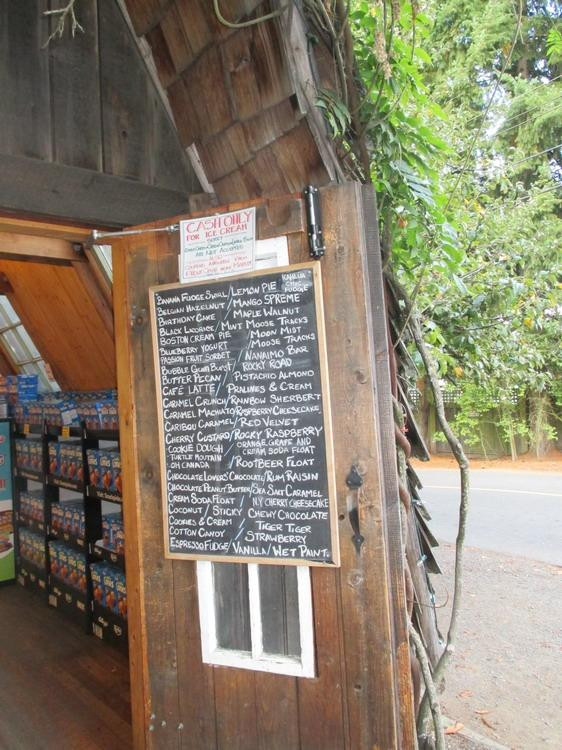 CASH ONLY
FOR ICE CREAM
SORRY
ARE NOT ACCEPTED
ALSO
KAHLUA
CHOC
FUDGE
BANANA FUDGE SWIRL / LEMON PIE
BELGIAN HAZELNUT / MANGO SPREME
BIRTHDAY CAKE / MAPLE WALNUT
BLACK LICORICE / MINT MOOSE TRACKS
BOSTON CREAM PIE / MOON MIST
BLUEBERRY YOGURT / MOOSE TRACKS
PASSION FRUIT SORBET / NANAIMO BAR
BUBBLE GUM BURST / ROCKY ROAD
BUTTER PECAN / PISTACHIO ALMOND
CAFÉ LATTE / PRALINES & CREAM
CARAMEL CRUNCH / RAINBOW SHERBERT
CARAMEL MACHIATO / RASPBERRY CHEESECAKE
CARIBOU CARAMEL / RED VELVET
CHERRY CUSTARD / ROCKY RASPBERRY
COOKIE DOUGH / ORANGE, GRAPE AND
TURTLE MOUTAIN / CREAM SODA FLOAT
OH CANADA / ROOTBEER FLOAT
CHOCOLATE LOVERS' CHOCOLATE / RUM RAISIN
CHOCOLATE PEANUT BUTTER / SEA SALT CARAMEL
CREAM SODA FLOAT / N.Y CHERRY CHEESECAKE
COCONUT / STICKY CHEWY CHOCOLATE
COOKIES & CREAM / TIGER TIGER
COTTON CANDY / STRAWBERRY
ESPRESSO FUDGE / VANILLA / WET PAINT